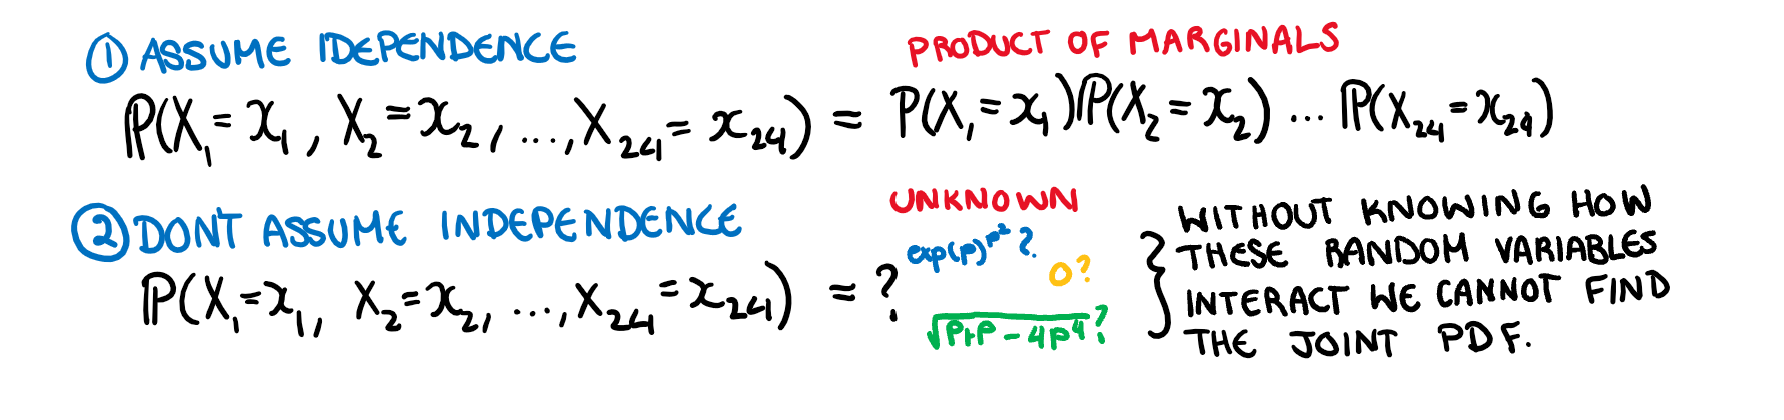 ① ASSUME IDEPENDENCE
PRODUCT OF MARGINALS
ℙ(X₁=x₁, X₂=x₂, ..., X₂₄=x₂₄) = ℙ(X₁=x₁)ℙ(X₂=x₂) ... ℙ(X₂₄=x₂₄)
② DON'T ASSUME INDEPENDENCE
UNKNOWN
ℙ(X₁=x₁, X₂=x₂, ..., X₂₄=x₂₄) = ?
exp(p)^p² ?
0?
√(P+P - 4P⁴)?
WITHOUT KNOWING HOW
THESE RANDOM VARIABLES
INTERACT WE CANNOT FIND
THE JOINT PDF.